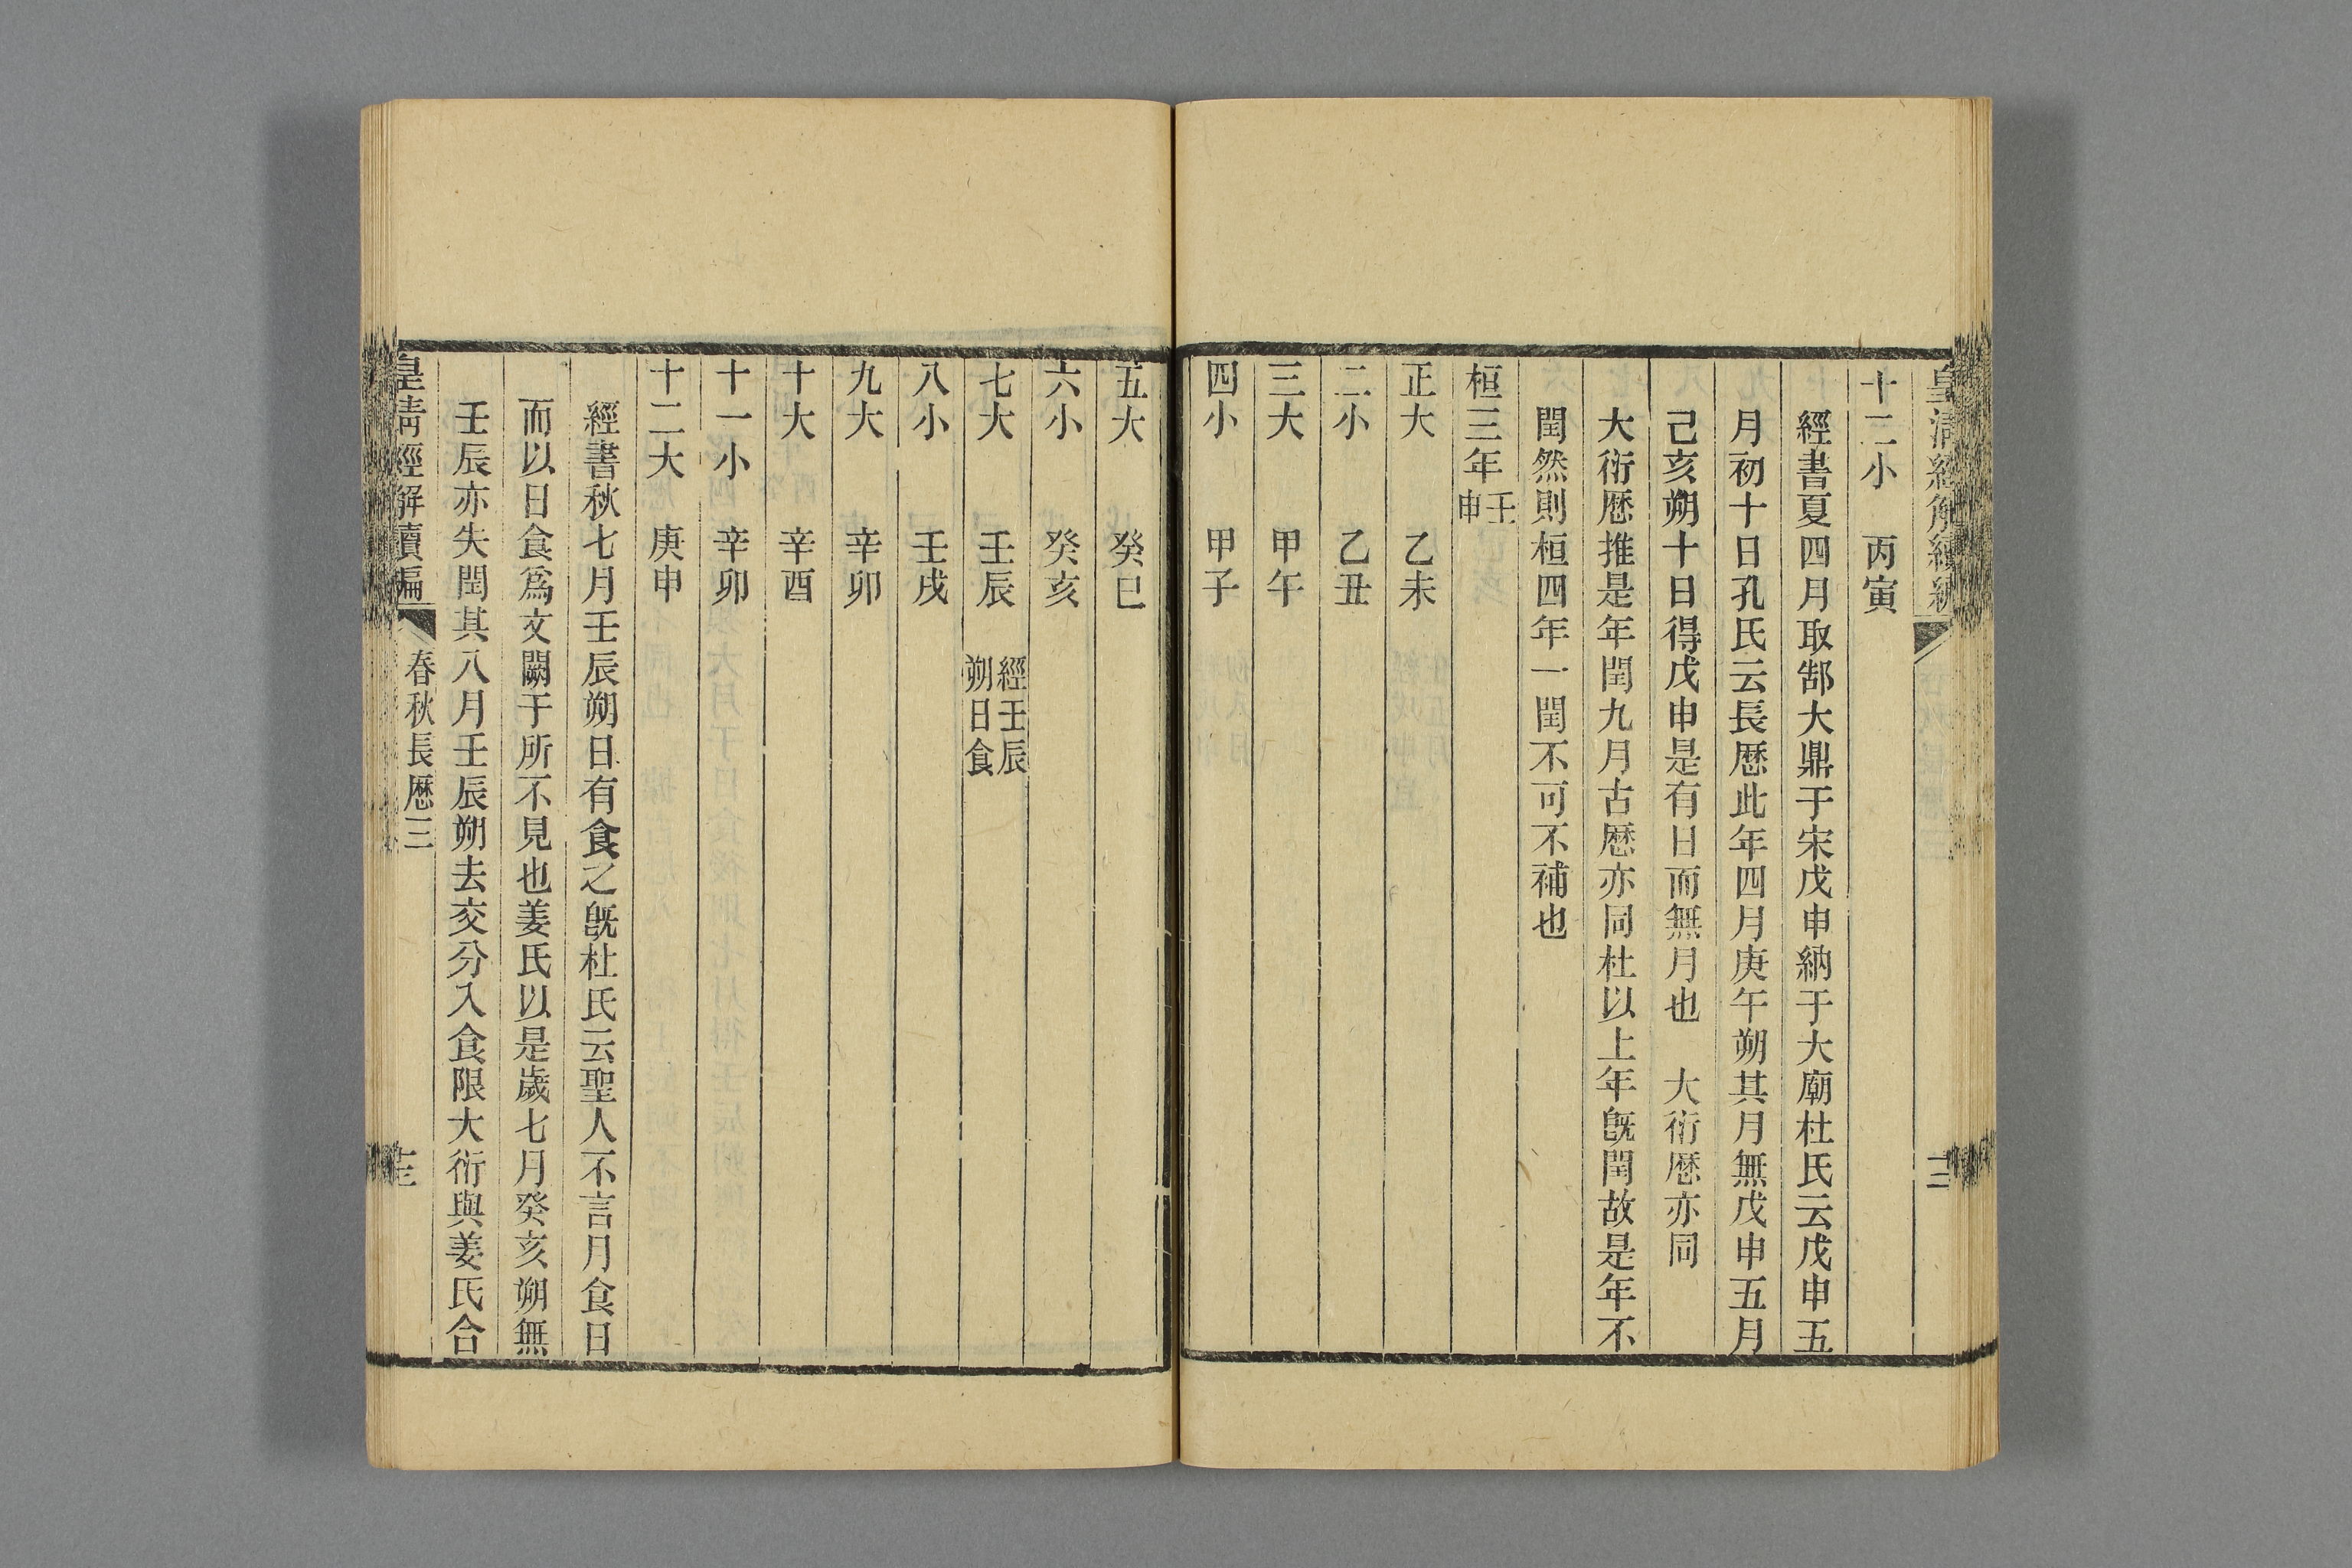 皇清經解續編
十二
十二小　丙寅
經書夏四月取郜大鼎于宋戊申納于大廟杜氏云戊申五
月初十日孔氏云長厯此年四月庚午朔其月無戊申五月
己亥朔十日得戊申是有日而無月也　大衍厯亦同
大衍厯推是年閏九月古厯亦同杜以上年既閏故是年不
閏然則桓四年一閏不可不補也
桓三年壬申
正大　乙未
二小　乙丑
三大　甲午
四小　甲子
五大　癸巳
六小　癸亥
七大　壬辰　經壬辰朔日食
八小　壬戌
九大　辛卯
十大　辛酉
十一小　辛卯
十二大　庚申
經書秋七月壬辰朔日有食之既杜氏云聖人不言月食日
而以日食爲文闕于所不見也姜氏以是歲七月癸亥朔無
壬辰亦失閏其八月壬辰朔去交分入食限大衍與姜氏合
皇清經解續編　春秋長厯三